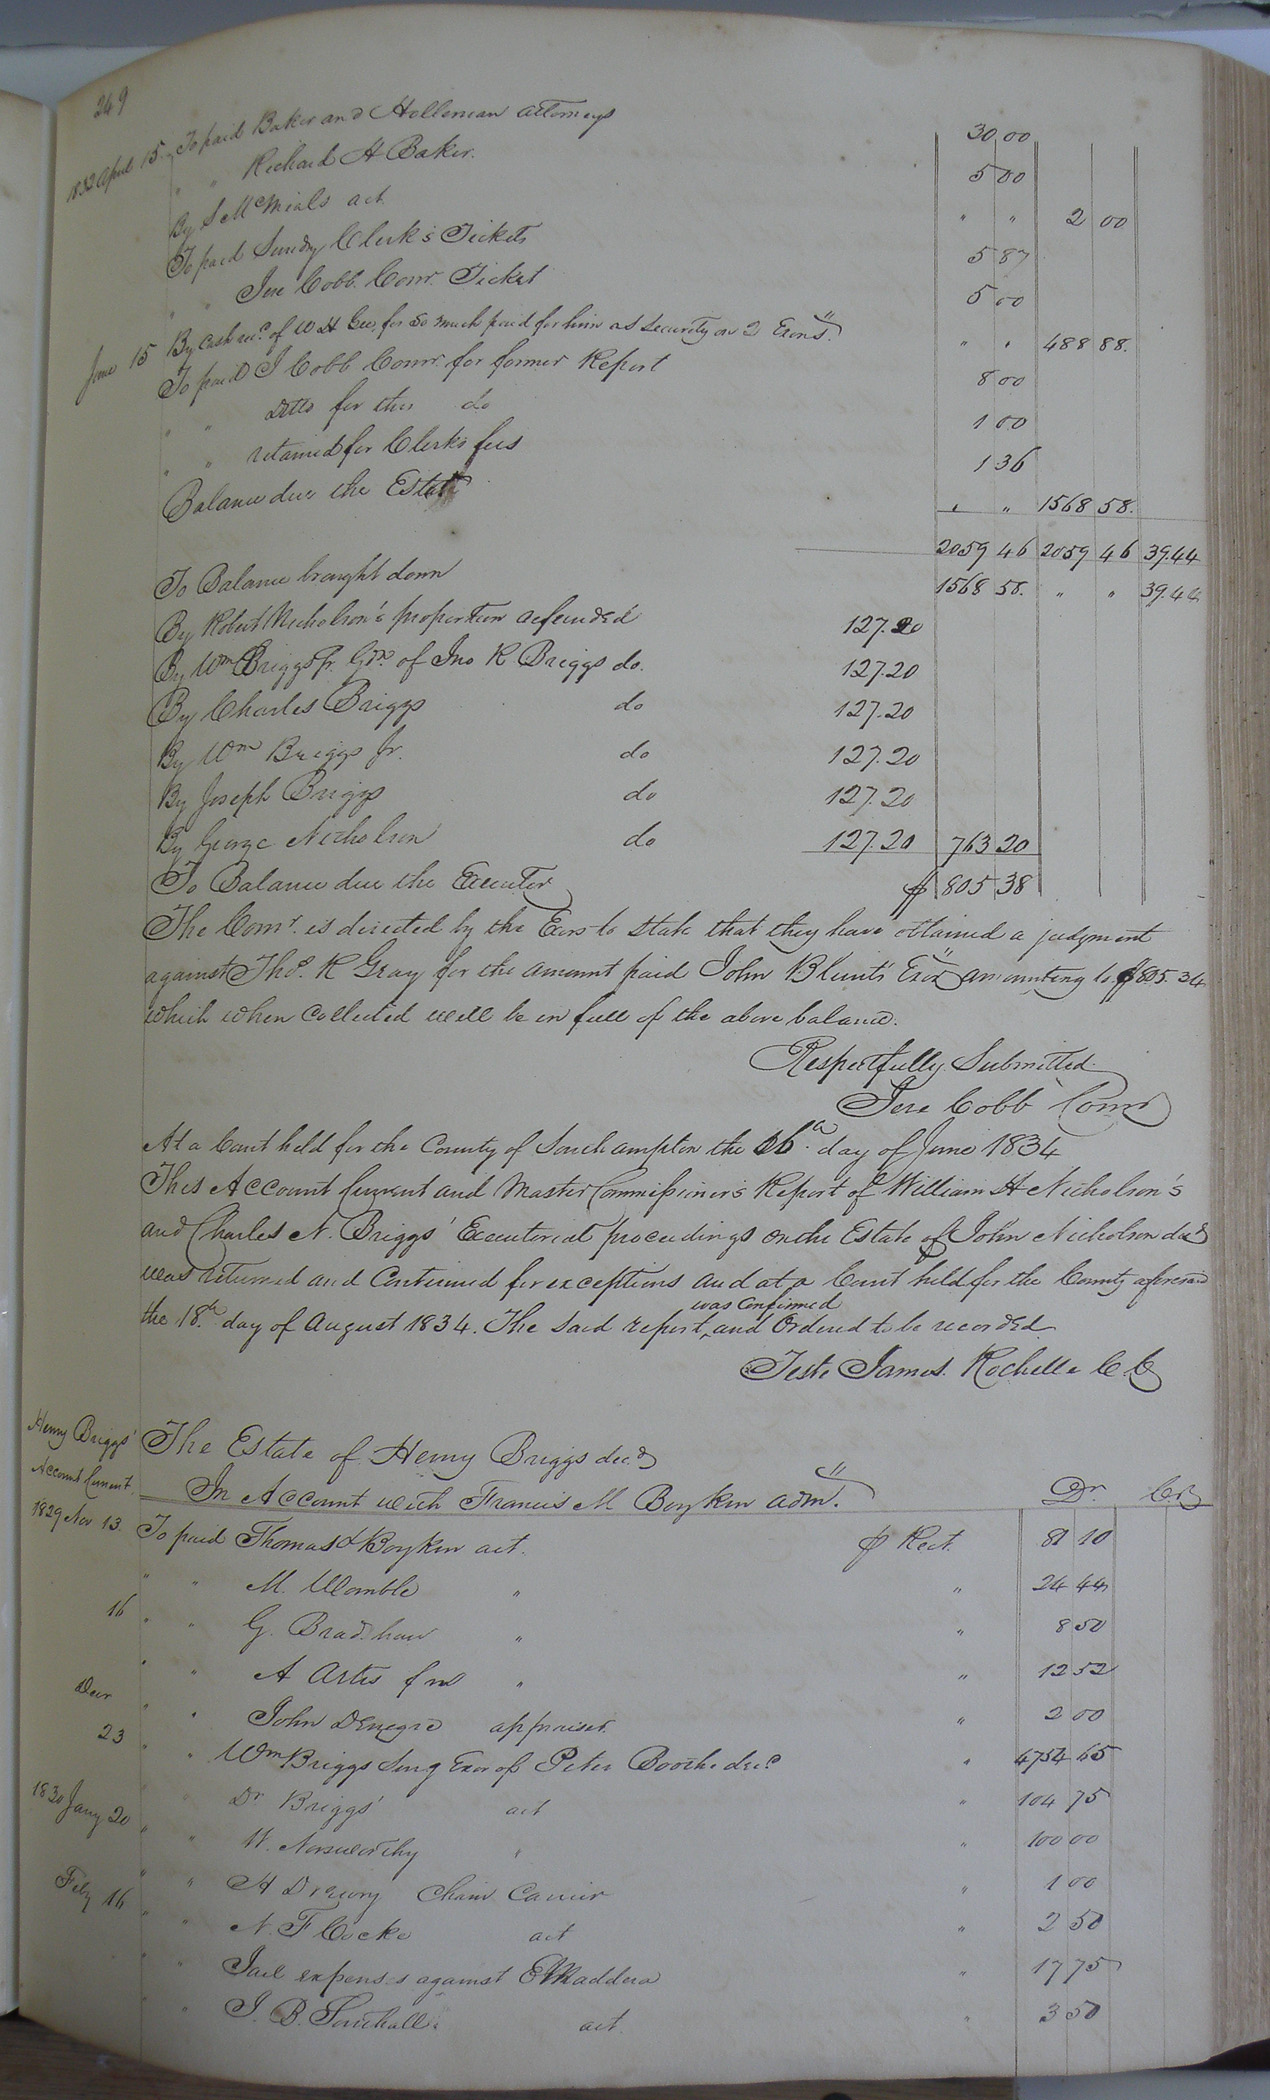 249
1832 April 15 To paid Baker and Holleman attorneys 30 00
" " Richard H Baker. 5 00
By S McNiels act " " 2 00
To paid Sundry Clerk's Tickets 5 87
" " Jere Cobb Comr. Ticket 5 00
June 15 By cash recd. of W H Gee, for so much paid for him as security on 2 Exons. " " 488 88.
To paid J Cobb Comr. for former Report 8 00
" " Ditto for this do 1 00
" " retained for Clerk's fees 1 36
Balance due the Estate " " 1568 58.
2059 46 2059 46 39.44
To Balance brought down 1568 58. " " 39.44
By Robert Nicholson's proportion refunded 127.20
By Wm Briggs Jr. Gdn. of Jno R Briggs do. 127.20
By Charles Briggs do 127.20
By Wm Briggs Jr. do 127.20
By Joseph Briggs do 127.20
By George Nicholson do 127.20 763 20
To Balance due the Executor $ 805 38
The Comr. is directed by the Exors to state that they have obtained a judgment
against Thos. R Gray for the amount paid John Blunt's Exor amounting to $805.34
which when collected will be in full of the above balance.
Respectfully Submitted.
Jere Cobb Comr
At a Court held for the County of Southampton the 16th. day of June 1834
This Account Current and Master Commissioner's Report of William H Nicholson's
and Charles N. Briggs' Executorial proceedings on the Estate of John Nicholson decd
was returned and Continued for exceptions and at a Court held for the County aforesaid
was Confirmed
the 18th. day of August 1834. The said report, and Ordered to be recorded
Teste James. Rochelle C.C
Henry Briggs'
Account Current.
The Estate of Henry Briggs decd
In Account with Francis M Boykin admr. Dr. CR
1829 Nov 13. To paid Thomas & Boykin act. $ Rect. 81 10
" " M. Womble " " 24 44
16 " " G. Bradshaw " " 8 50
" " A Artis fn " " 12 52
Decr " " John Denegre appraiser. " 2 00
23 " " Wm Briggs Surg Exor of Peter Booth decd " 4754 65
" Dr Briggs' act " 104 75
1830 Jany 20 " " W. Norsworthy " " 100 00
" " H Drewry Chain Carrier " 1 00
Feby 16 " " N. F Cocke act " 2 50
" " Jail expenses against E Maddera " 17 75
" " J. B. Southall's act. " 3 50